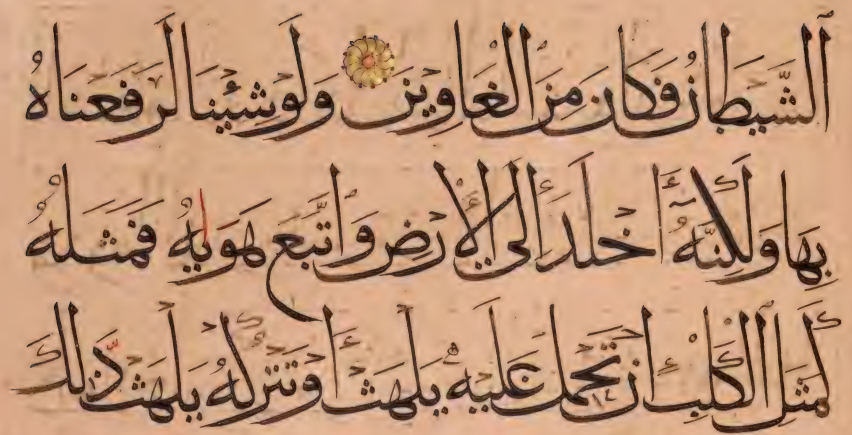 ٱلشَّيْطَانُ فَكَانَ مِنَ ٱلْغَاوِينَ وَلَوْ شِئْنَا لَرَفَعْنَاهُ
بِهَا وَلَٰكِنَّهُۥٓ أَخْلَدَ إِلَى ٱلْأَرْضِ وَٱتَّبَعَ هَوَىٰهُ فَمَثَلُهُ
كَمَثَلِ ٱلْكَلْبِ إِنْ تَحْمِلْ عَلَيْهِ يَلْهَثْ أَوْ تَتْرُكْهُ يَلْهَثْ ذَٰلِكَ